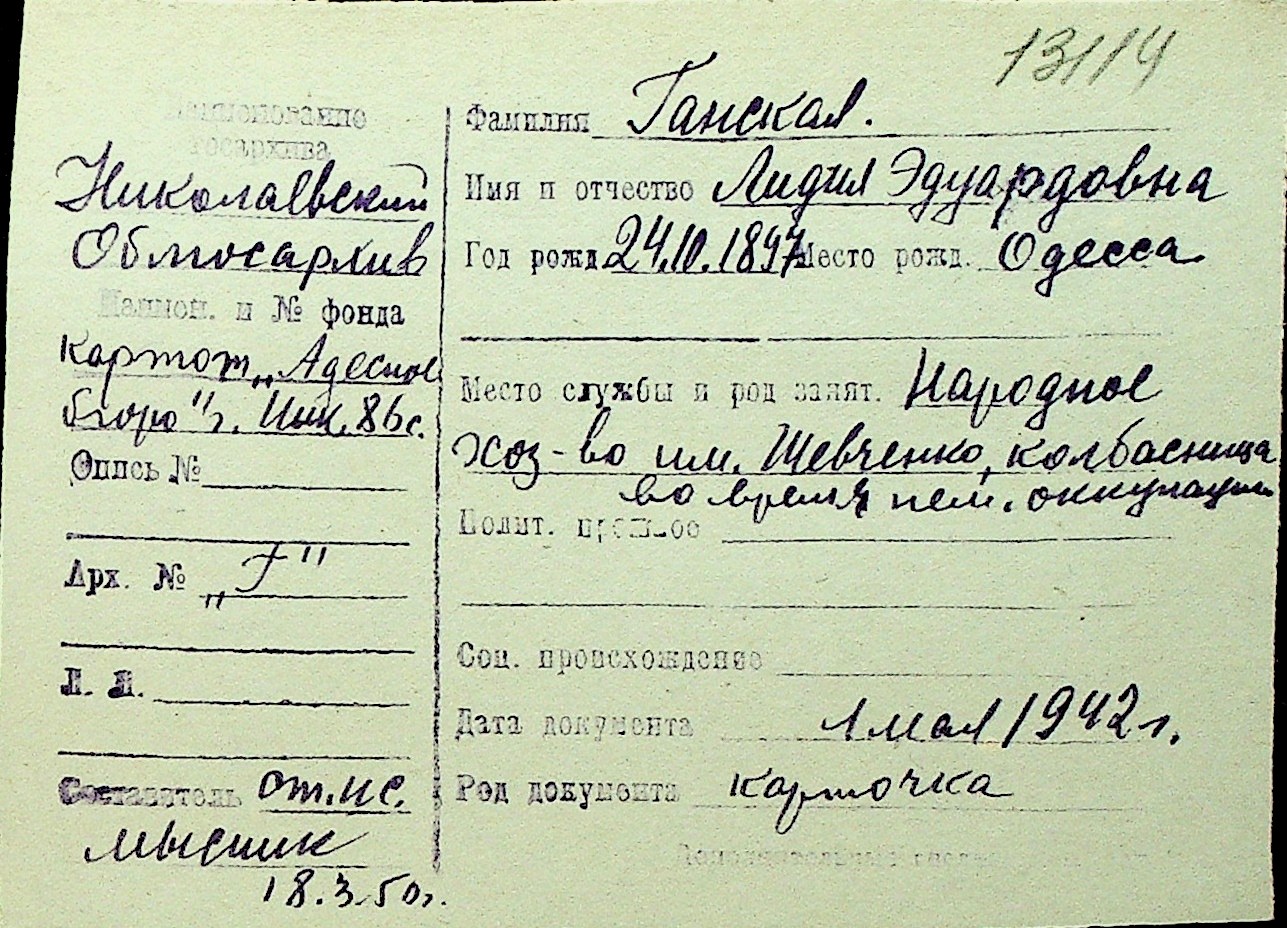 13114
Наименование
госархива
Николаевский
Облгосархив
Наимен. и № фонда
картот. „Адесное
бюро" г. Ник. 86 с.
Опись №
Арх. № „F"
Л. Л.
Составитель от. ис.
Мысник
18.3.50 г.
Фамилия Ганская.
Имя и отчество Лидия Эдуардовна
Год рожд. 24.10.1897 Место рожд. Одесса
Место службы и род занят. Народное
хоз-во им. Шевченко, колбасница
во время нем. оккупации
Полит. прошлое
Соц. происхождение
Дата документа 1 мая 1942 г.
Род документа карточка